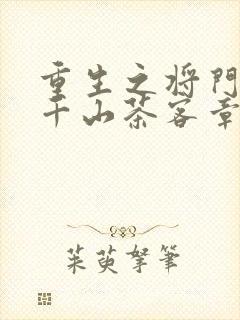 重生之将门
千山茶客章
茱萸孥筆